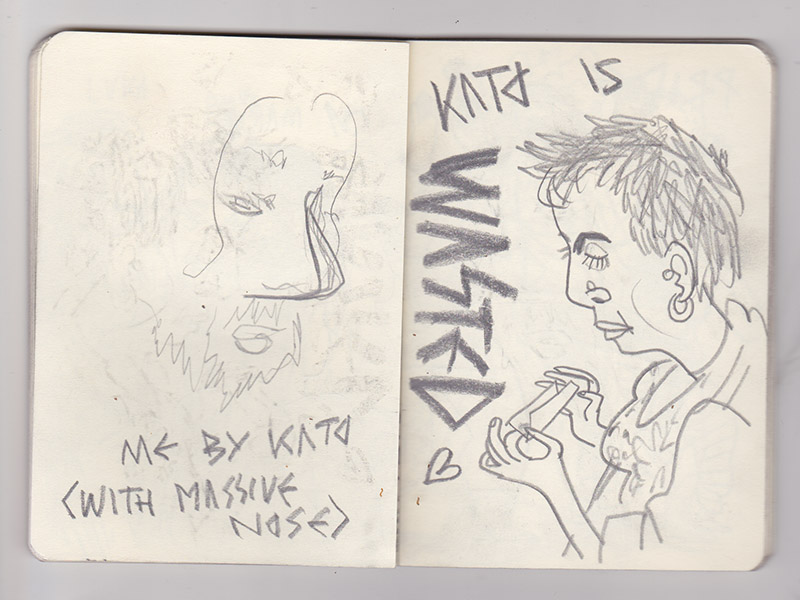 ME BY KATO
(WITH MASSIVE
NOSE)
KATO IS
WASTED